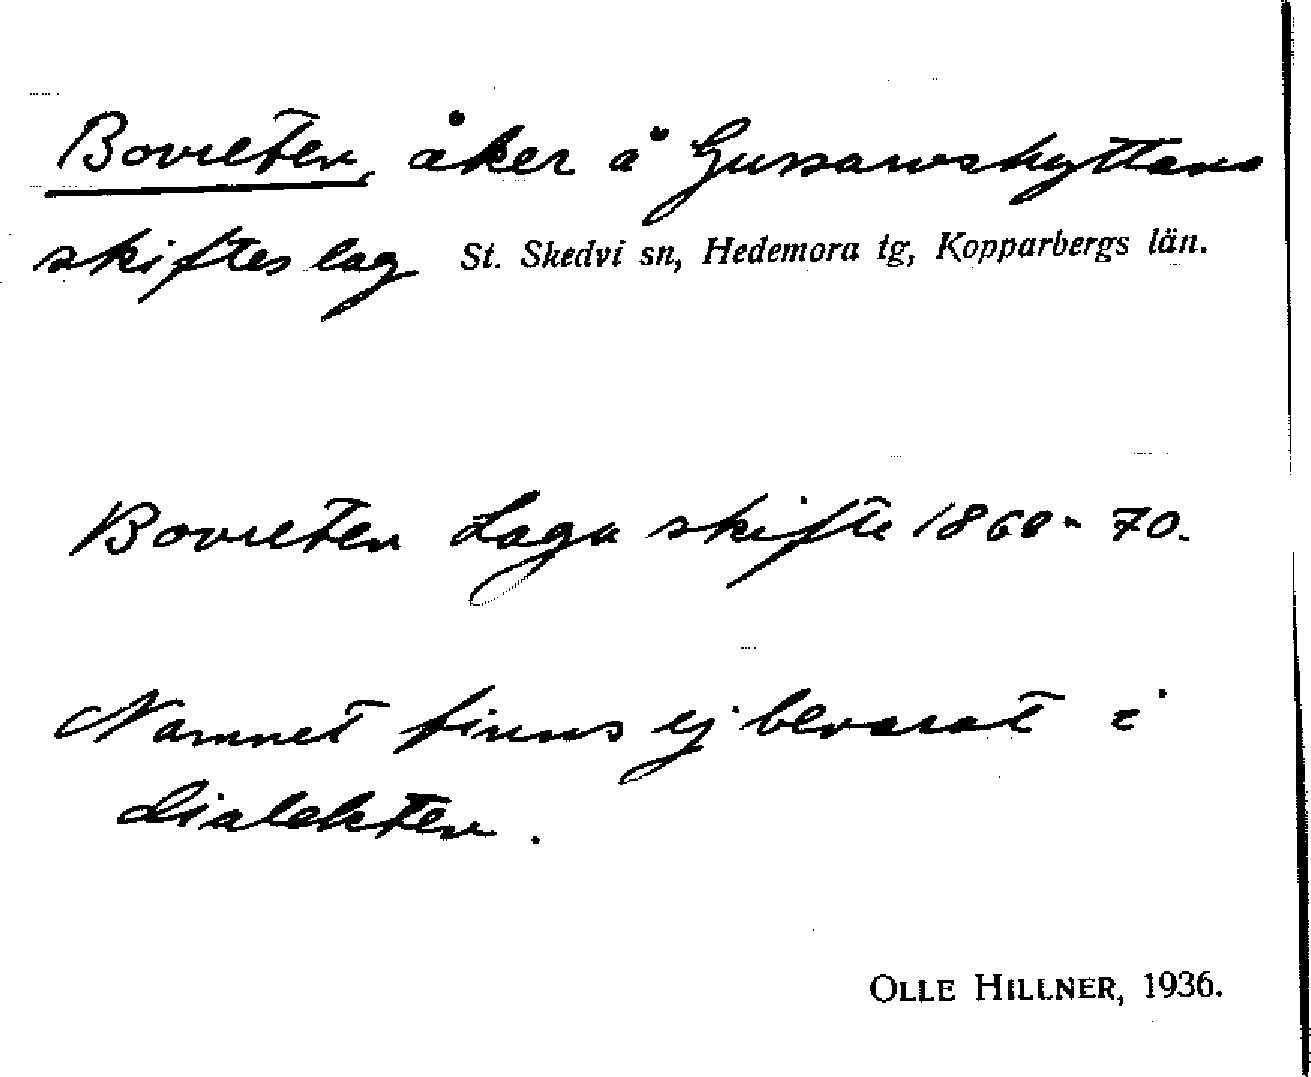 Bovreten, åker å Gussarvshyttans
skifteslag St. Skedvi sn, Hedemora tg, Kopparbergs län.
Bovreten Laga skifte 1860-70.
Namnet finns ej bevarat i
dialekten.
OLLE HILLNER, 1936.